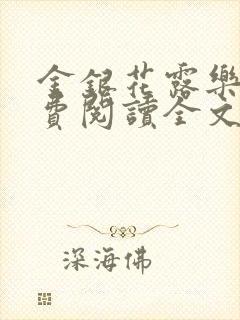 金銀花露樂
費閱讀全文
深海佛